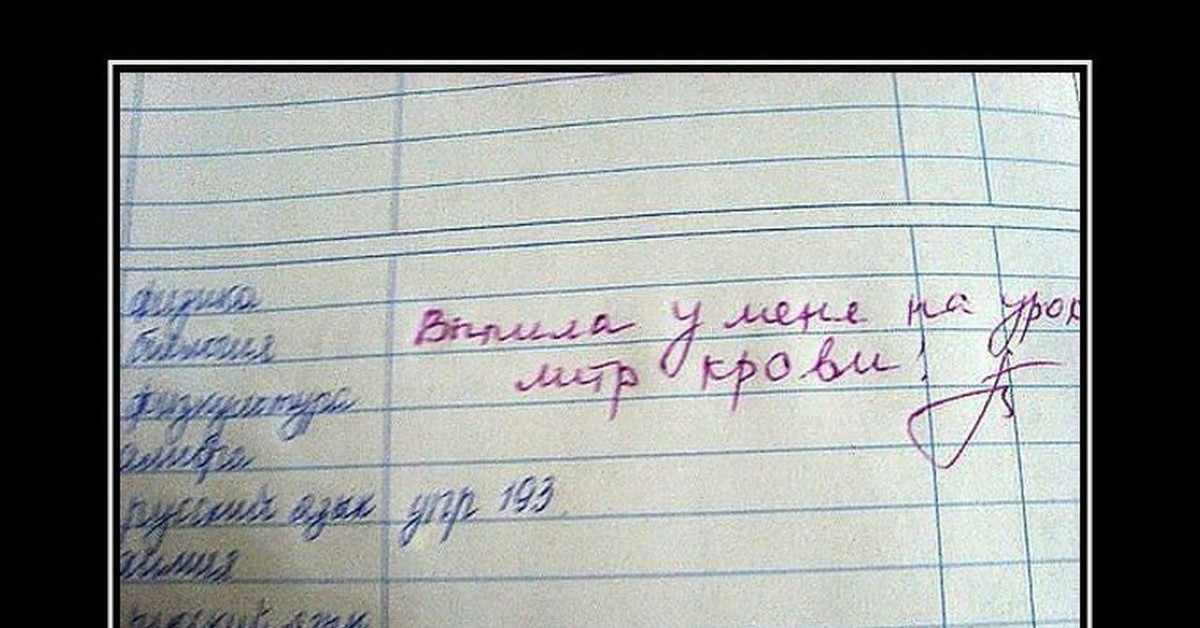 физика
биология
Выпила у меня на урок
литр крови!
физкультура
алгебра
русский язык упр 193
химия
русский язык